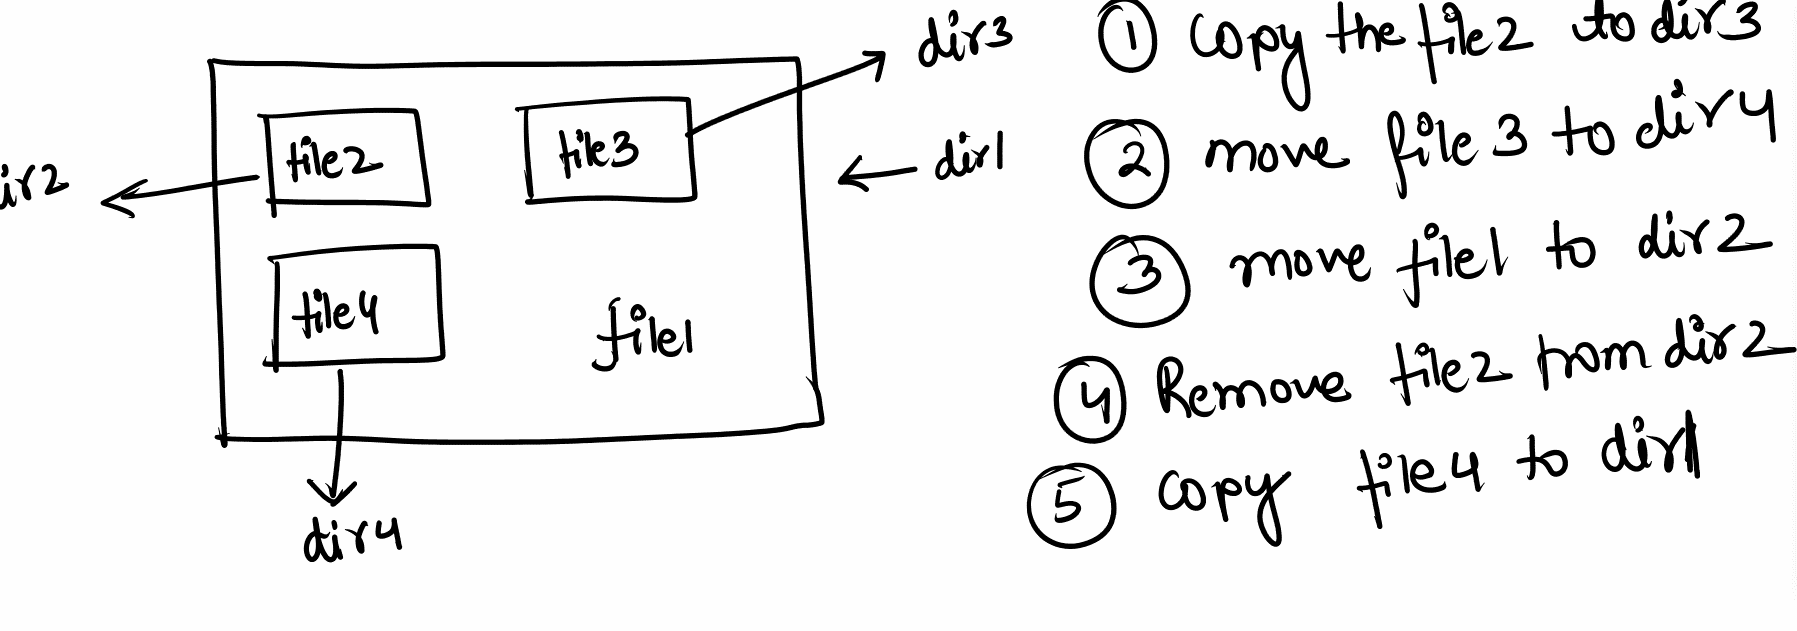 dir3
file2
file3
dir1
ir2
file4
file1
dir4
① Copy the file2 to dir3
② move file3 to dir4
③ move file1 to dir2
④ Remove file2 from dir2
⑤ copy file4 to dir1